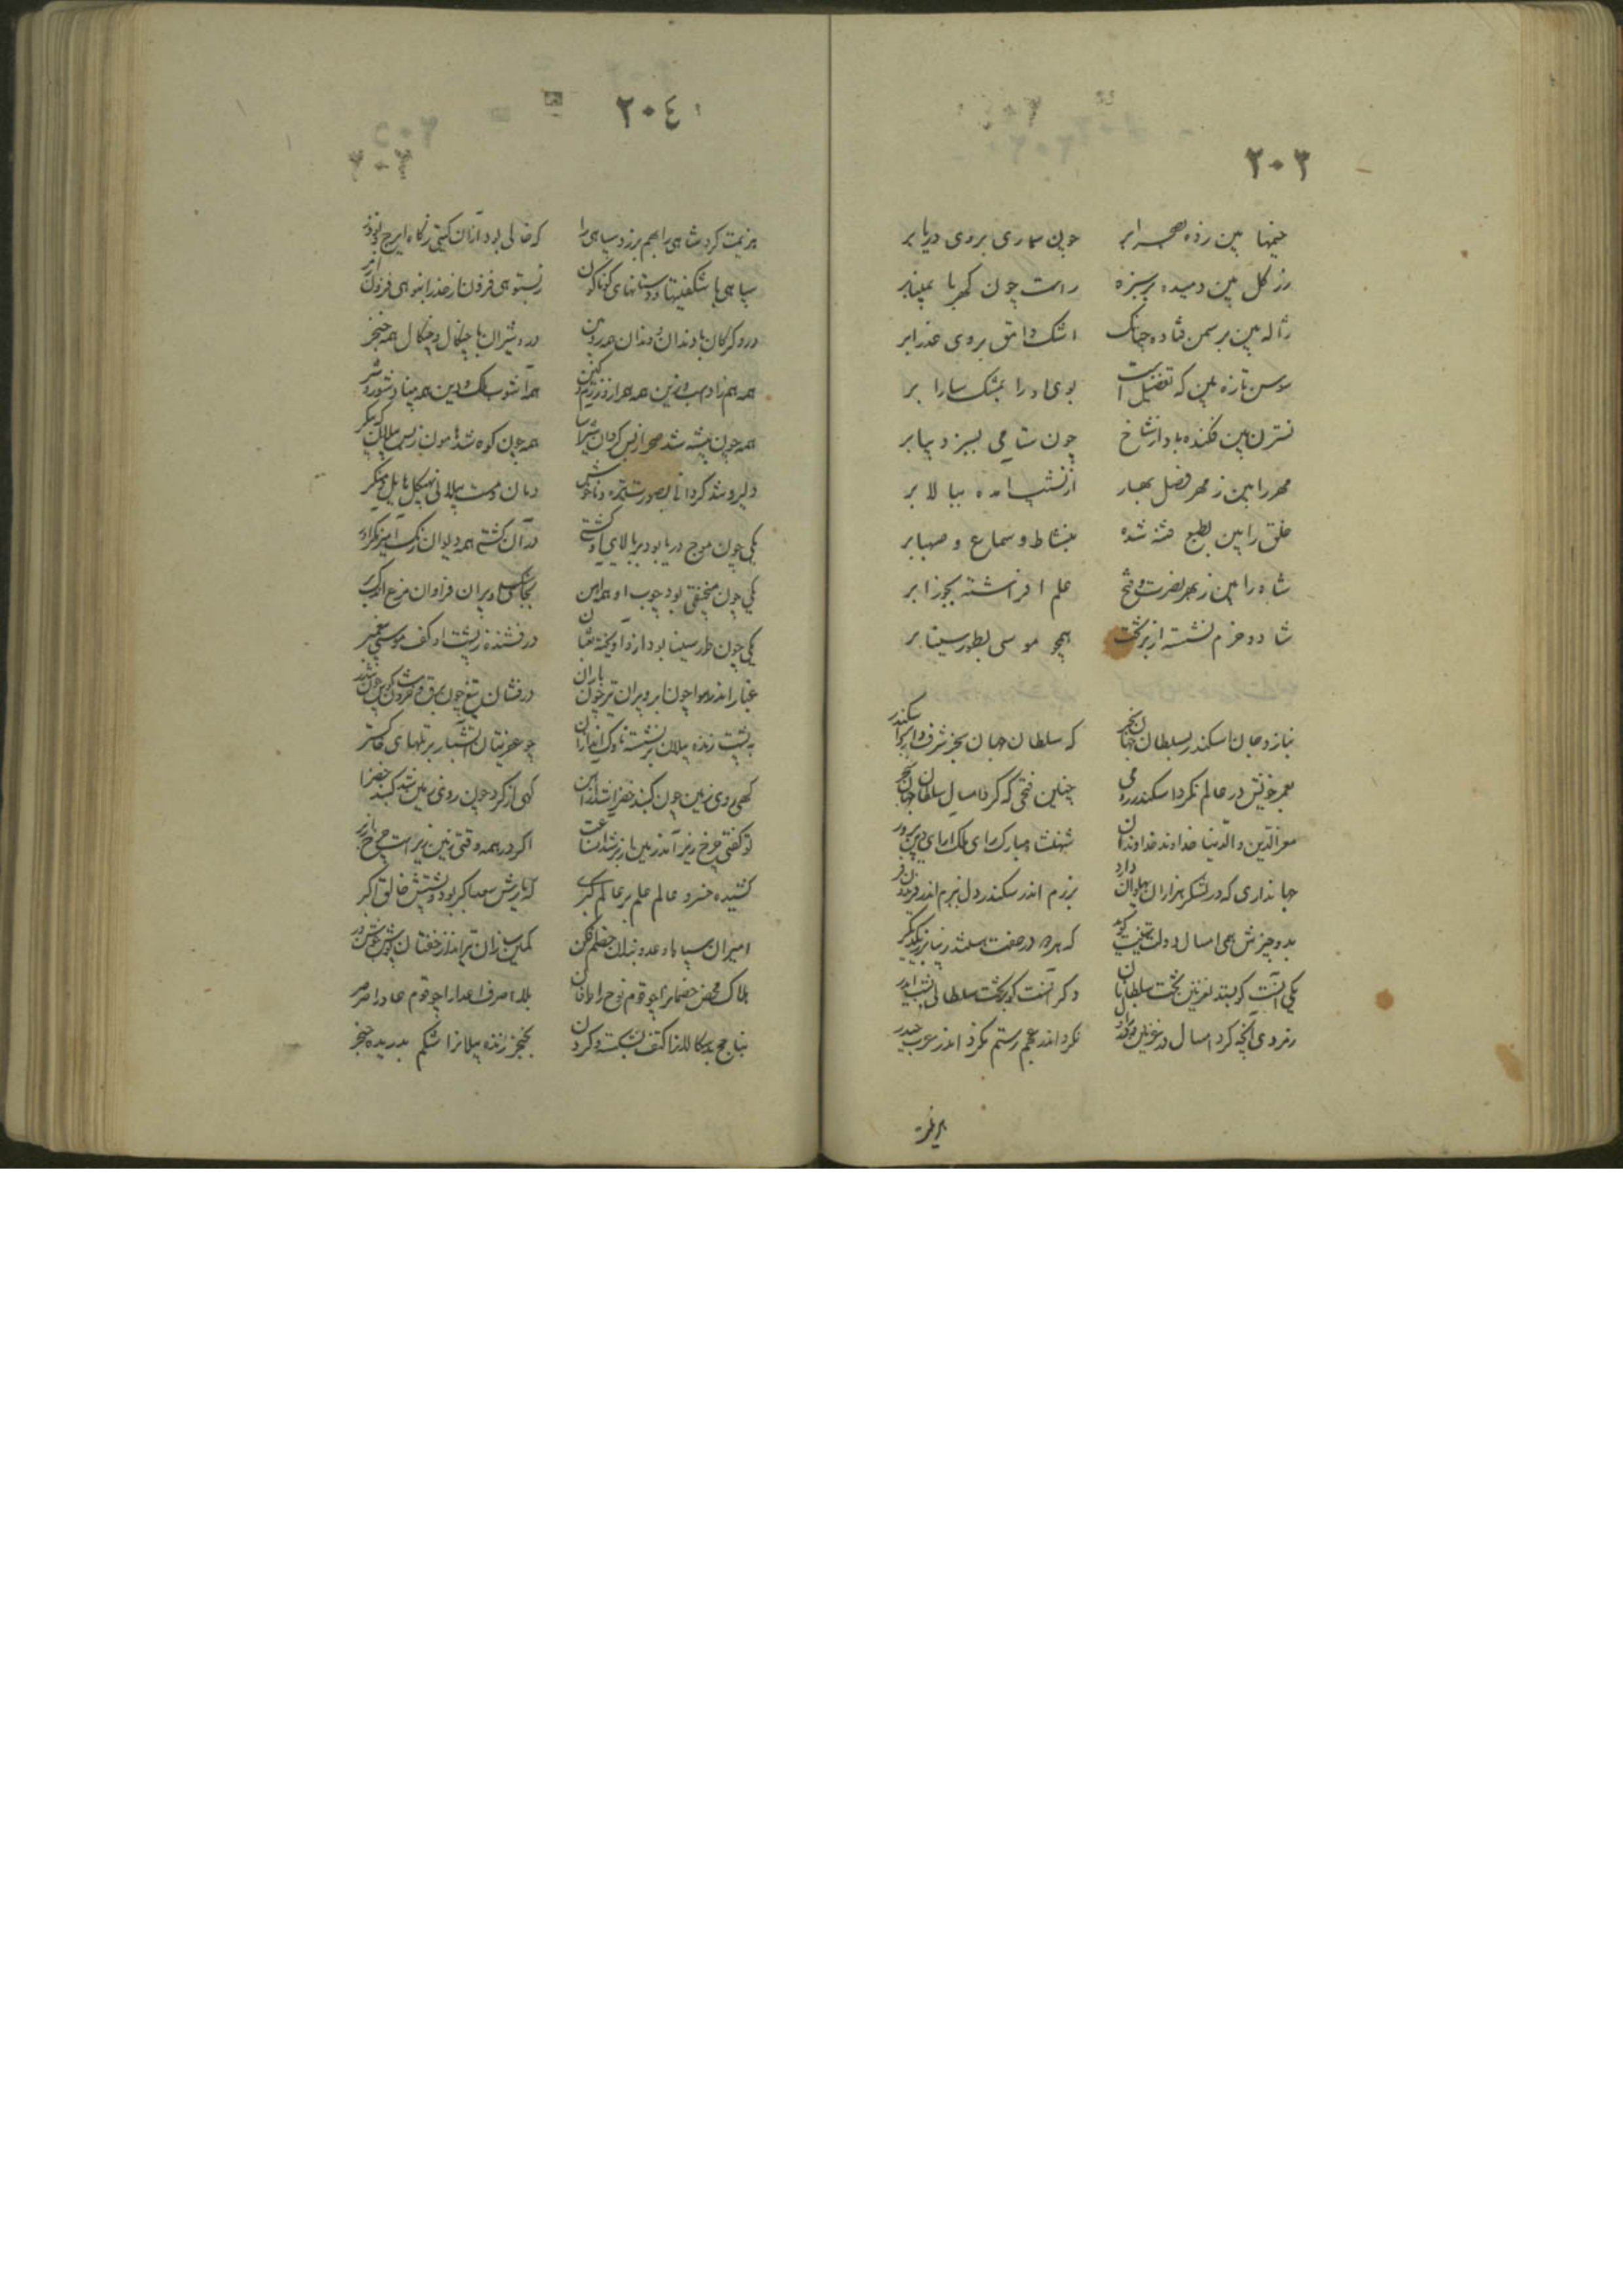 ٢٠٣
خیمها بین زده بصحرا بر چون سماری بروی دریا بر
زر کل بین دمیده بر سبزه راست چون کهربا بمینا بر
ژاله بین بر سمن فتاده چنانک اشک وامق بروی عذرا بر
سوسن تازه بین که تفضیل است بوی او را بمشک سارا بر
نسترن بین فکنده باد از شاخ چون شامی بسبز دیبا بر
مهر را بین ز مهر فصل بهار از نشیب آمده ببالا بر
خلق را بین بطبع فتنه شده بنشاط و سماع و صهبا بر
شاه را بین ز بهر نصرت و فتح علم افراشته بجوزا بر
شاد و خرم نشسته از بر تخت همچو موسی بطور سینا بر
بنازد جان اسکندر بسلطان جهان سنجر که سلطان جهان سنجر شرف دارد بر اسکندر
بعمر خویش در عالم نکرد اسکندر رومی چنین فتحی که کرد امسال سلطان جهان سنجر
معز الدین و الدنیا خداوند خداوندان شهنشاه مبارک رای ملک آرای دین پرور
جهانداری که در لشکر هزاران پهلوان دارد برزم اندر سکندر دل ببزم اندر فریدون فر
بدو چیزش همی امسال دولت تهنیت کوید که هر دو در صفت هستند زیباتر ز یکدیگر
یکی آنست کو بستد بغزنین تخت سلطانان دکر آنست کو بر تخت سلطانی نشست ایدر
ز مردی آنچه کرد امسال در غزنین
نکرد اندر عجم رستم نکرد اندر عرب حیدر
٢٠٤
هزیمت کرد شاهی را بهم بر زد سپاهی را که خالی بود ازان کیتی ز کاه ایرج و نوذر
سپاهی با شکفتیها و دستانهای کوناکون
درو کرکان با دندان و دندان همه زوبین درو شیران با چنکال و چنکال همه خنجر
همه آشوب ملک و دین همه بنیاد شور و شر
همه چون بیشه شد صحرا ز بس کردان شیر آسا همه چون کوه شد هامون ز بس پیلان که پیکر
دلیر و تند کردانی بصورت تیره و ناخوش دمان و مست پیلانی بهیکل هایل و منکر
یکی چون موج دریا بود بر بالای او کشتی در آن کشتی همه دیوان رنک آمیز
یکی چون منجنیقی بود چوب او همه آهن بجای سنک او پران فراوان مرغ
یکی چون طور سینا بود ازو آویخته ثعبان درفشنده ز پشت او کف موسی پیغمبر
غبار اندر هوا چون ابر و پران تیر چون باران درفشان تیغ چون برق و خروش کوس چون تندر
به پشت زنده پیلان بر نشسته ناوک اندازان چو عفریتان آتشبار بر تلهای خاکستر
کهی روی زمین چون کنبد خضرا شد از آهن کهی از کرد چون روی زمین شد کنبد خضرا
تو کفتی چرخ زیر آمد زمین از بر شد آن ساعت اکر در همه وقتی زمین زیر است و چرخ از بر
کشیده خسرو عالم علم بر عالم کبری که یارش سعد اکبر بود و پشتش خالق اکبر
امیران سپاه او عدو بندان خصم افکن کمین سازان تیر انداز خفتان پوش جوشن در
هلاک محض خصمان را چو قوم نوح را طوفان بلاء صرف اعدا را چو قوم عاد را صرصر
بناچخ بدسکالان را کتف بشکسته و کردن بخنجر زنده پیلان را شکم بدریده و حنجر